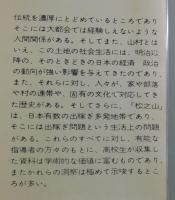 伝統を濃厚にとどめているところであり
そこには大都会では経験しえないような
人間関係がある。そしてまた、山村とは
いえ、この土地の社会生活には、明治に
降、そのときどきの日本の経済 政治
の動向が強い影響を与えてきたのであり、
また、それらに対し、人々が、家や部落
や村の連帯や、固有の文化で対応してき
た歴史がある。そしてさらに、「松之山」
は、日本有数の出稼ぎ多発地帯であり、
そこには出稼ぎ問題という生活上の問題
がある。これらのすべてに対し、有能な
指導者の方々のもとに、高校生が収集し
た資料は学術的な価値に富むものであり、
またかれらの洞察は極めて示唆するとこ
ろが多い。